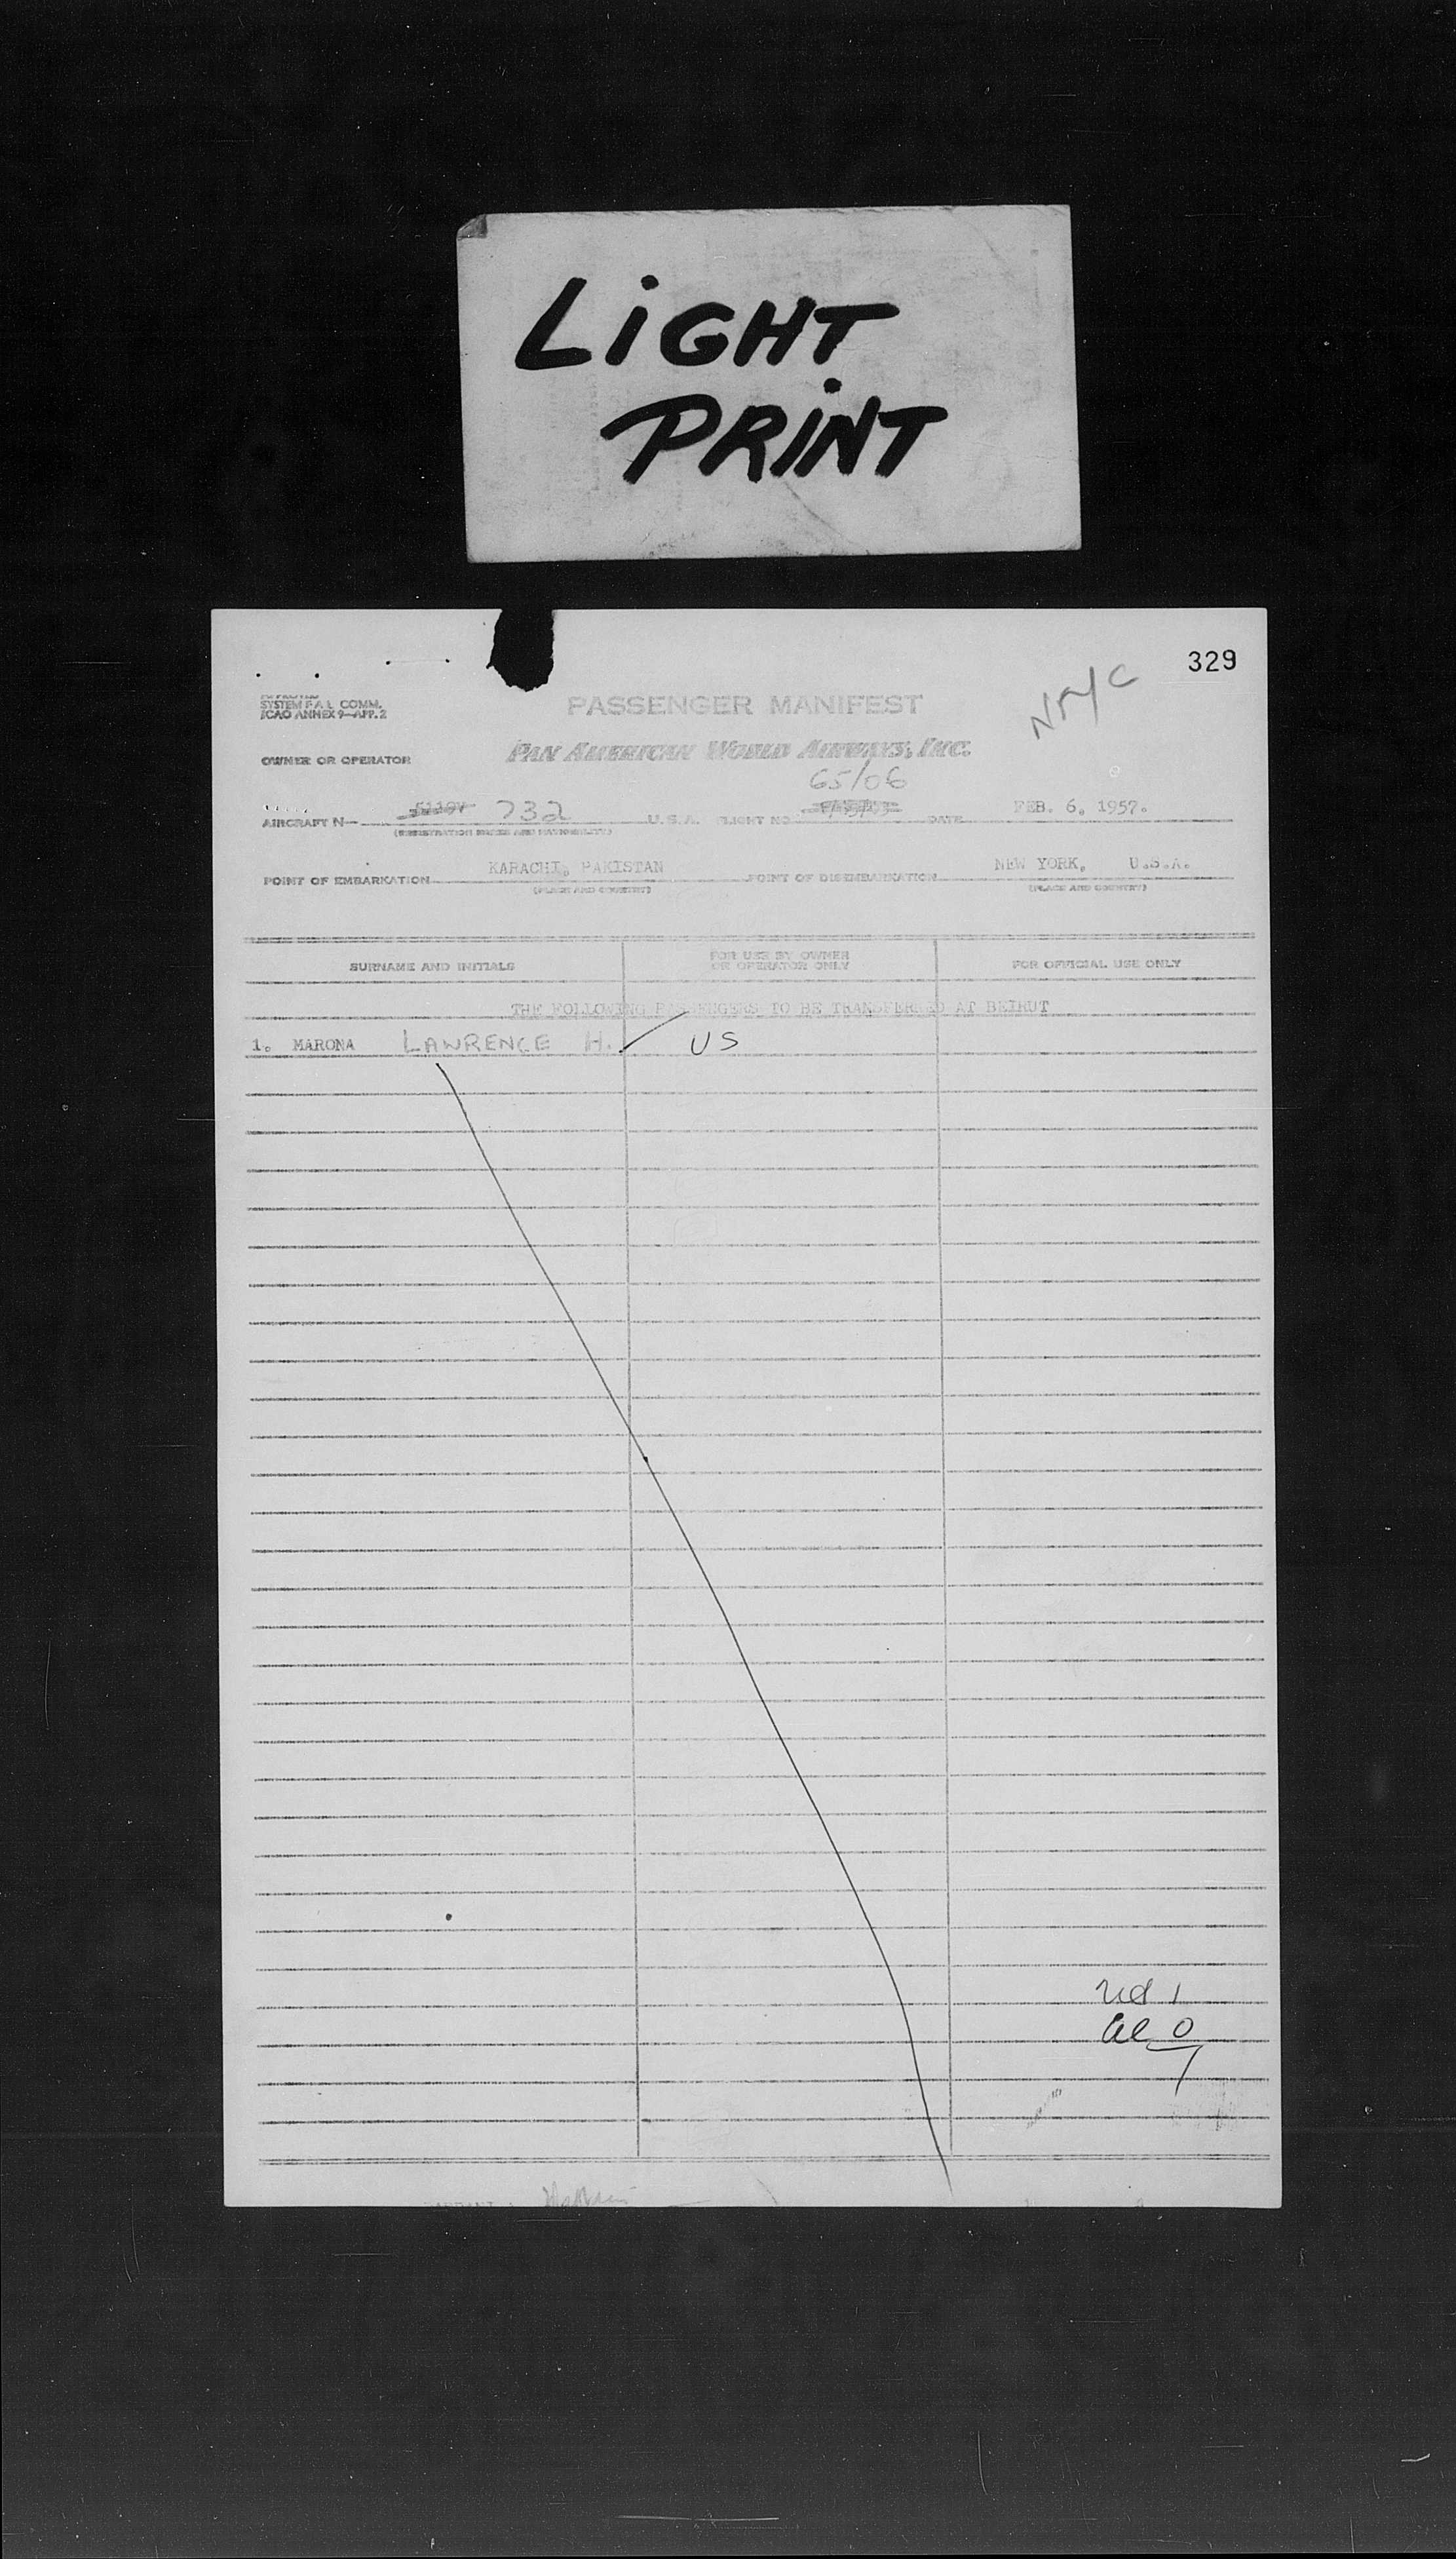 LiGHT
PRiNT
329
NYC
APPROVED
SYSTEM F A L COMM.
ICAO ANNEX 9—APP. 2
PASSENGER MANIFEST
OWNER OR OPERATOR
PAN AMERICAN WORLD AIRWAYS, INC.
65/06
AIRCRAFT N— 732 U.S.A. FLIGHT NO. DATE FEB. 6, 1957.
(REGISTRATION MARKS AND NATIONALITY)
POINT OF EMBARKATION KARACHI, PAKISTAN POINT OF DISEMBARKATION NEW YORK, U.S.A.
(PLACE AND COUNTRY) (PLACE AND COUNTRY)
SURNAME AND INITIALS FOR USE BY OWNER OR OPERATOR ONLY FOR OFFICIAL USE ONLY
THE FOLLOWING PASSENGERS TO BE TRANSFERRED AT BEIRUT
1. MARONA LAWRENCE H. US
1
0
1